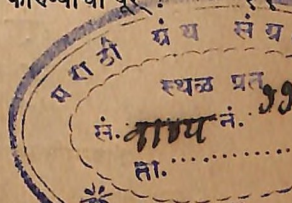 मराठी ग्रंथ संग्र
स्थळ प्रत
सं. काव्य नं. ११
ता.